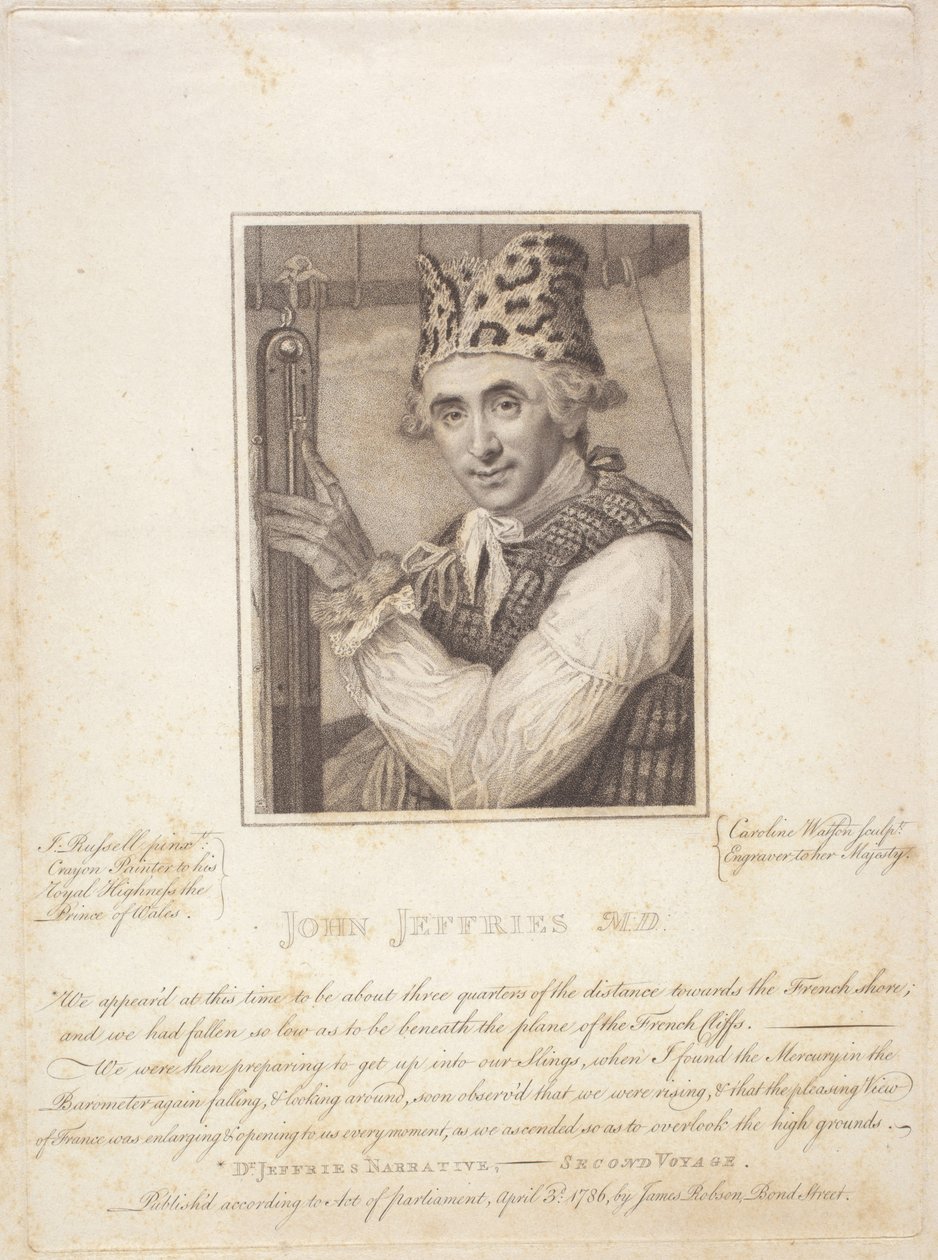 J. Russell pinxt.:
Crayon Painter to his
Royal Highness the
Prince of Wales.
Caroline Watson sculpt.
Engraver to her Majesty.
JOHN JEFFRIES M:D:
*We appear'd at this time to be about three quarters of the distance towards the French shore;
and we had fallen so low as to be beneath the plane of the French Cliffs. ———
We were then preparing to get up into our Slings, when I found the Mercury in the
Barometer again falling, & looking around, soon observ'd that we were rising, & that the pleasing View
of France was enlarging & opening to us every moment, as we ascended so as to overlook the high grounds.
*DR. JEFFRIES NARRATIVE, —— SECOND VOYAGE.
Publish'd according to Act of Parliament, April 3d. 1786, by James Robson, Bond Street.